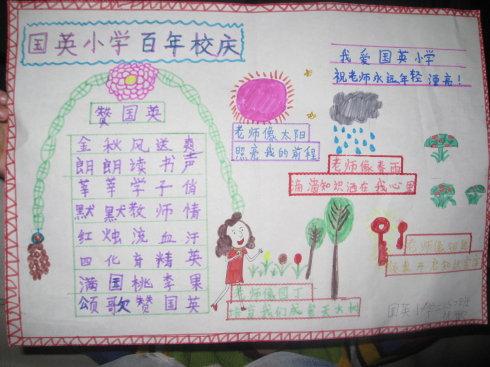 国英小学百年校庆
赞国英
金秋风送爽
朗朗读书声
莘莘学子俏
默默教师情
红烛流血汗
四化育精英
满国桃李果
颂歌赞国英
我爱国英小学
祝老师永远年轻漂亮！
老师像太阳
照亮我的前程
老师像春雨
滴滴知识洒在我心里
老师像钥匙
老师像园丁
培育我们成参天大树
国英小学